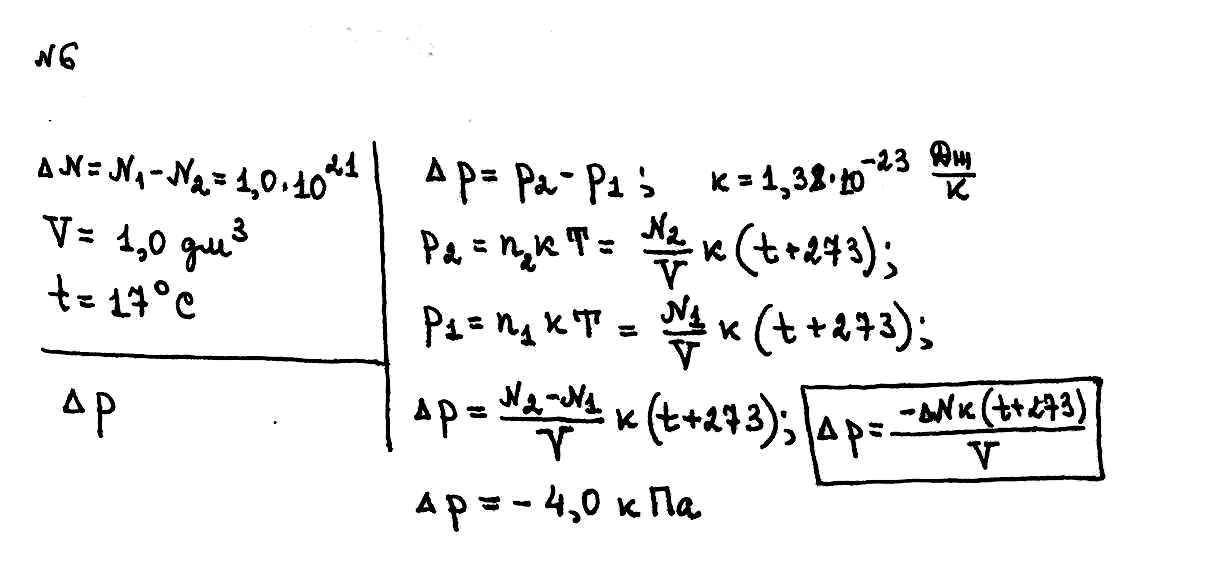 №6
ΔN = N₁ - N₂ = 1,0·10²¹
V = 1,0 дм³
t = 17°C
Δp
Δp = p₂ - p₁; к = 1,38·10⁻²³ Дж/К
p₂ = n₂кT = N₂/V к(t+273);
p₁ = n₁кT = N₁/V к(t+273);
Δp = (N₂-N₁)/V к(t+273); Δp = -ΔNк(t+273)/V
Δp = -4,0 кПа